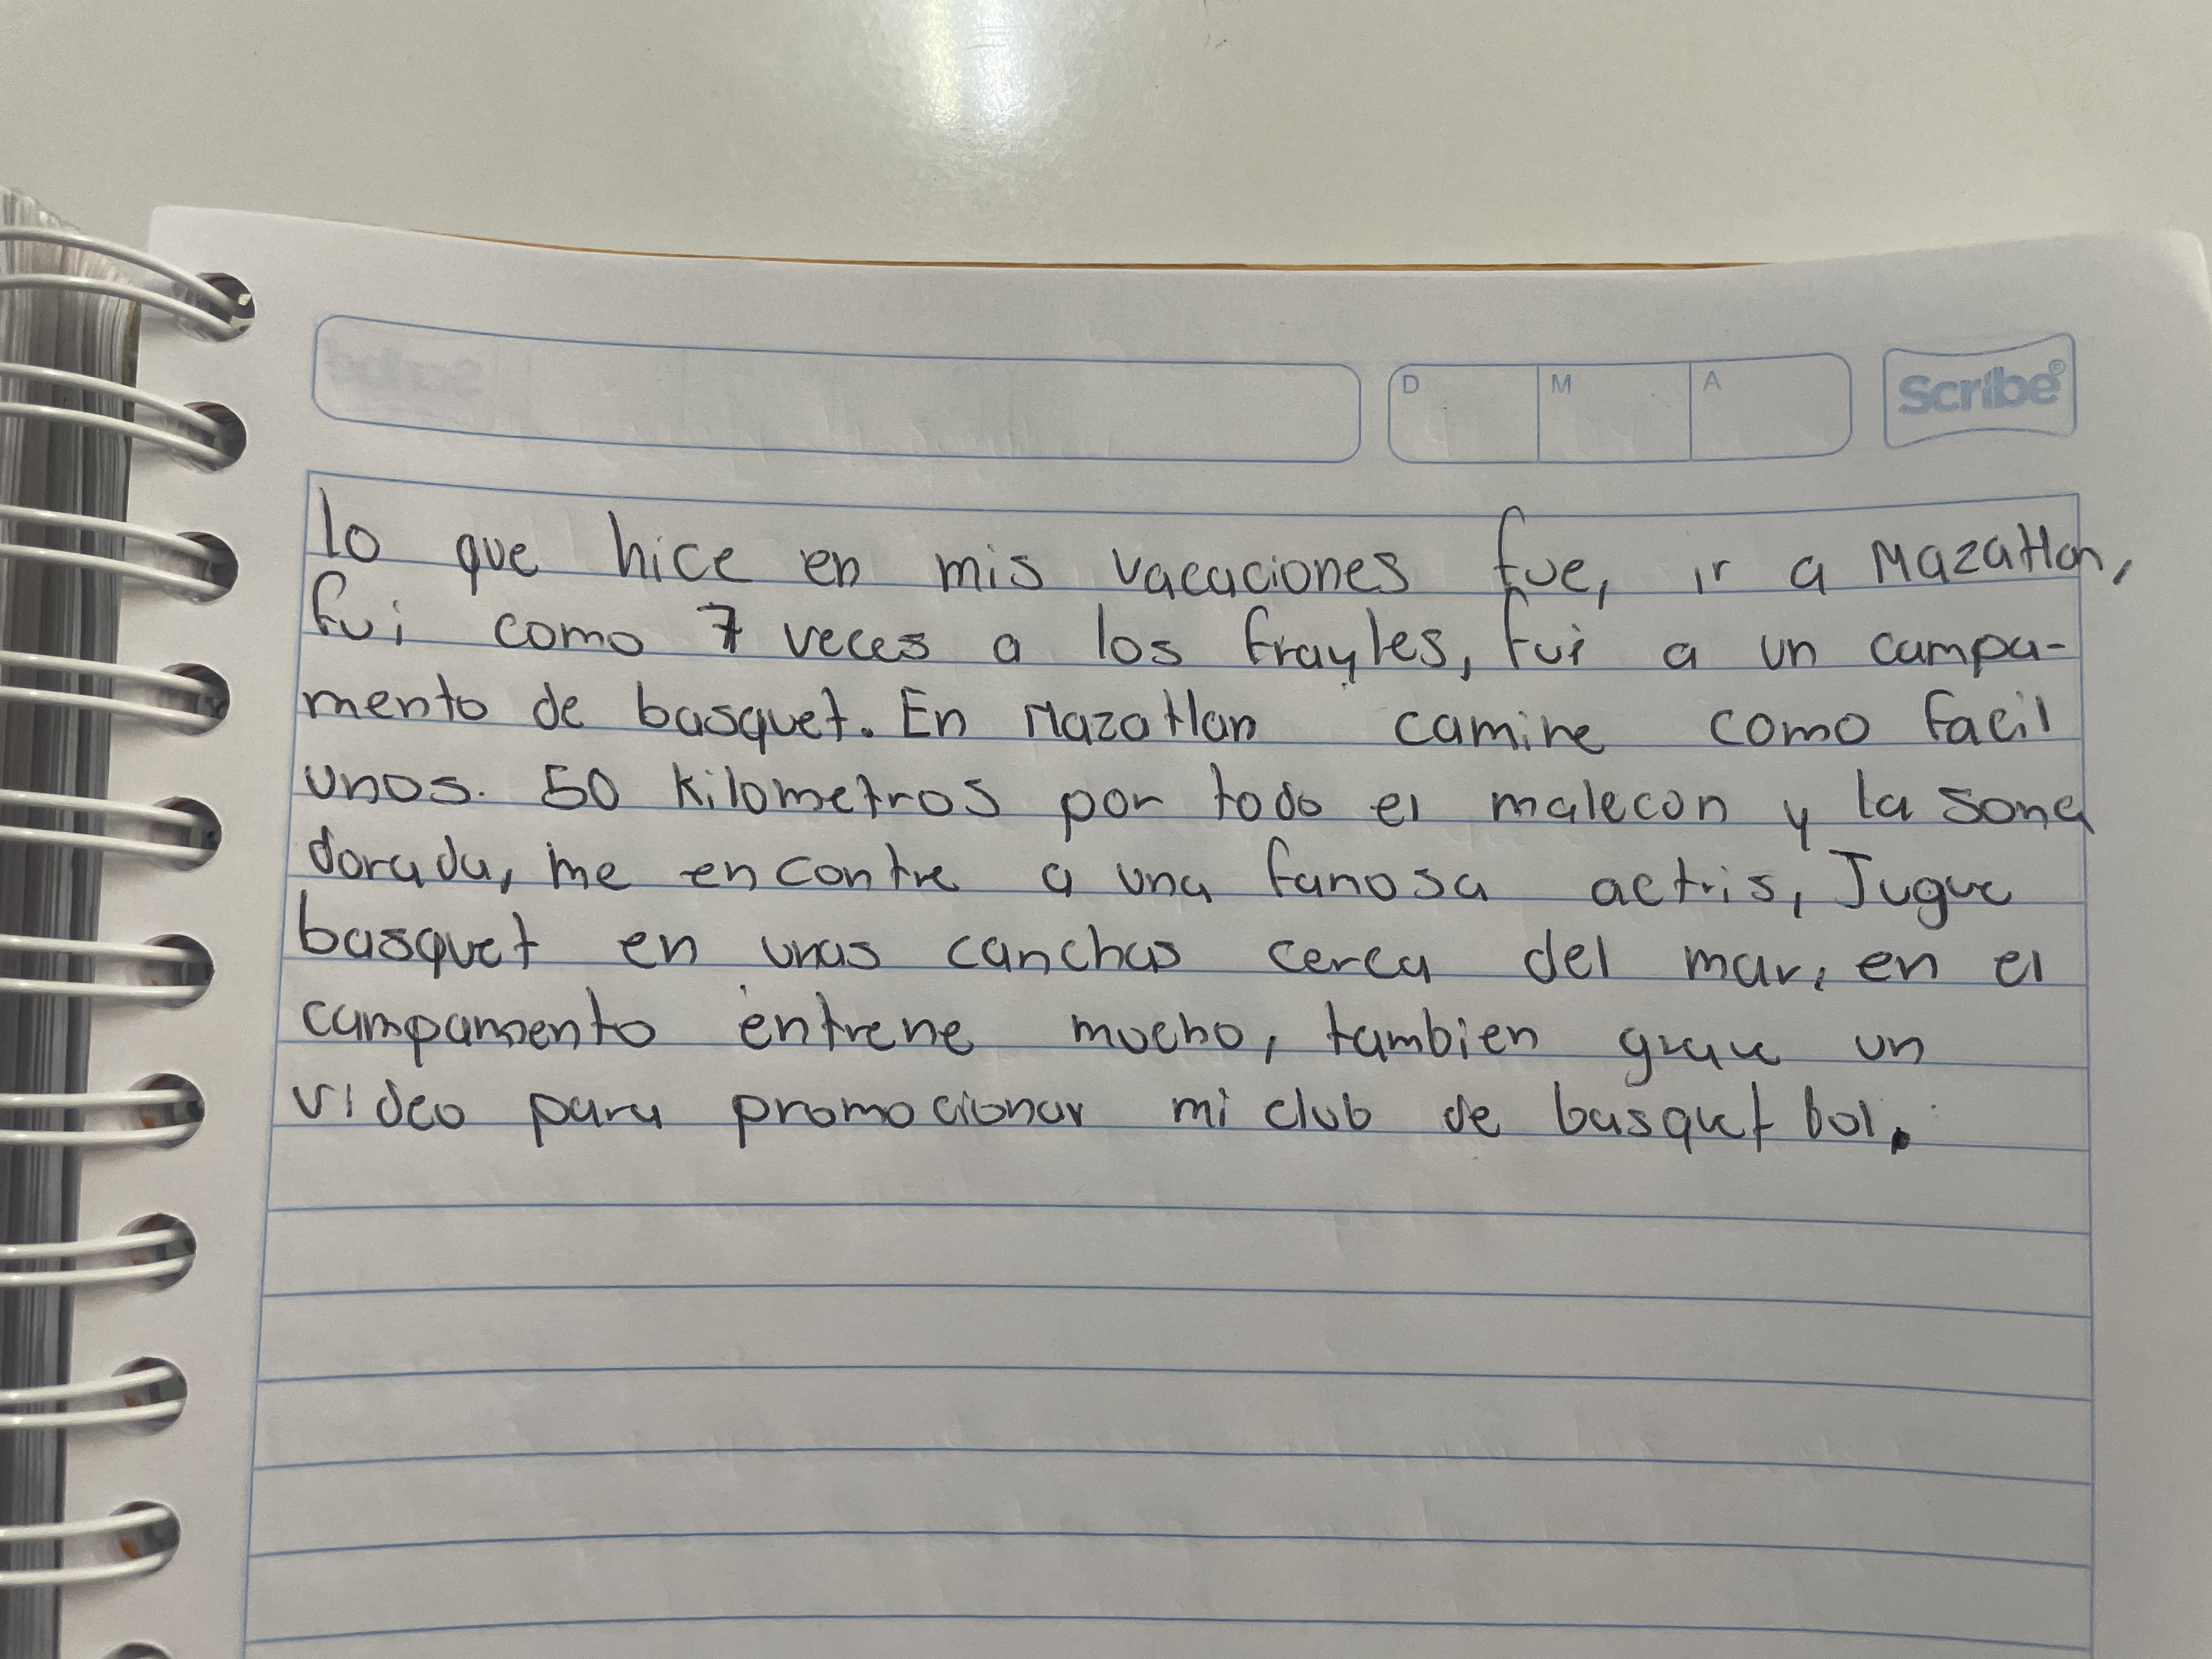 D M A Scribe®
lo que hice en mis vacaciones fue, ir a Mazatlan,
fui como 7 veces a los frayles, fui a un campa-
mento de basquet. En Mazatlan camine como facil
unos. 50 kilometros por todo el malecon y la sona
dorada, me encontre a una famosa actris, Jugue
basquet en unas canchas cerca del mar, en el
campamento entrene mucho, tambien grave un
video para promocionar mi club de basquet bol.